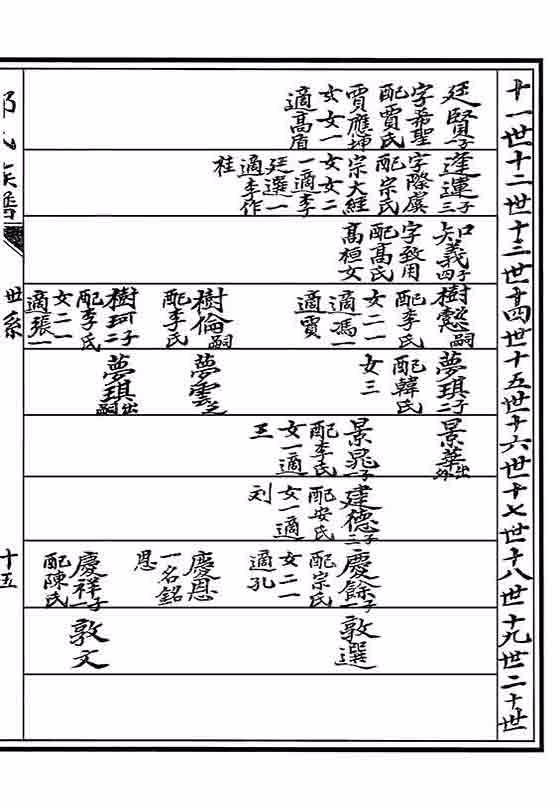 十一世
十二世
十三世
十四世
十五世
十六世
十七世
十八世
十九世
二十世
廷賢一子
字希聖
配賈氏
賈應坤
女女一
適高眉
逢運三子
字際虞
配宗氏
宗大經
女女二
一適李
廷選一
適李作
桂
知義四子
字致用
配高氏
高桓女
樹愨嗣
配李氏
女二一
適馮一
適賈
樹倫嗣
配李氏
樹珂二子
配李氏
女二一
適張一
夢琪二子
配韓氏
女三
夢雲乏
夢琪出嗣
景華出外
景晁一子
配李氏
女一適
王
建德三子
配安氏
女一適
刘
慶餘一子
配宗氏
女二一
適孔
慶恩
一名銘
恩
慶祥一子
配陳氏
敦選
敦文
氏族譜
世系
十五